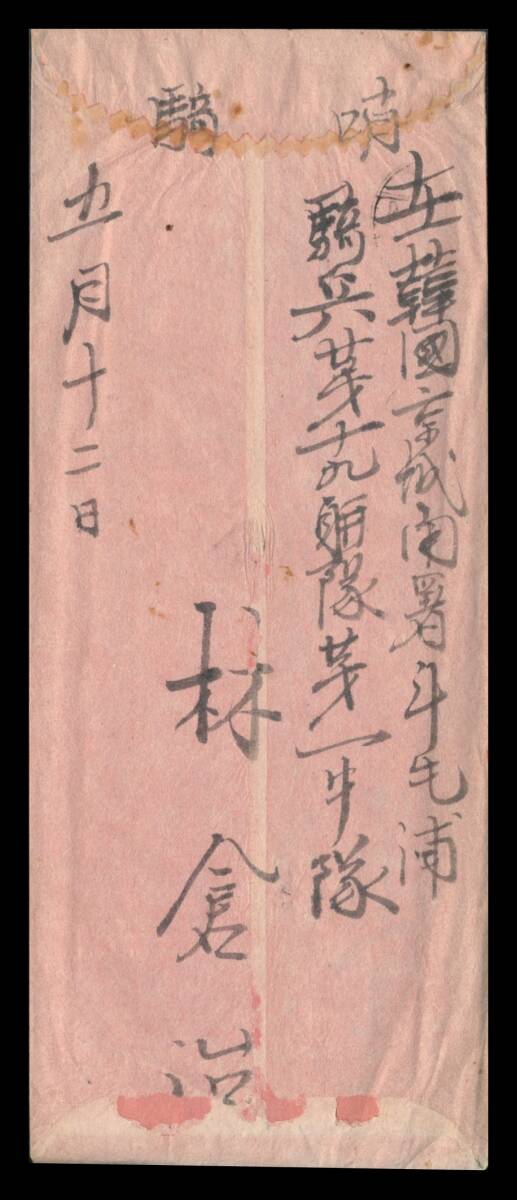 哨 騎
在韓國京城南署斗毛浦
騎兵㐧十九聯隊㐧一中隊
林倉治
五月十二日